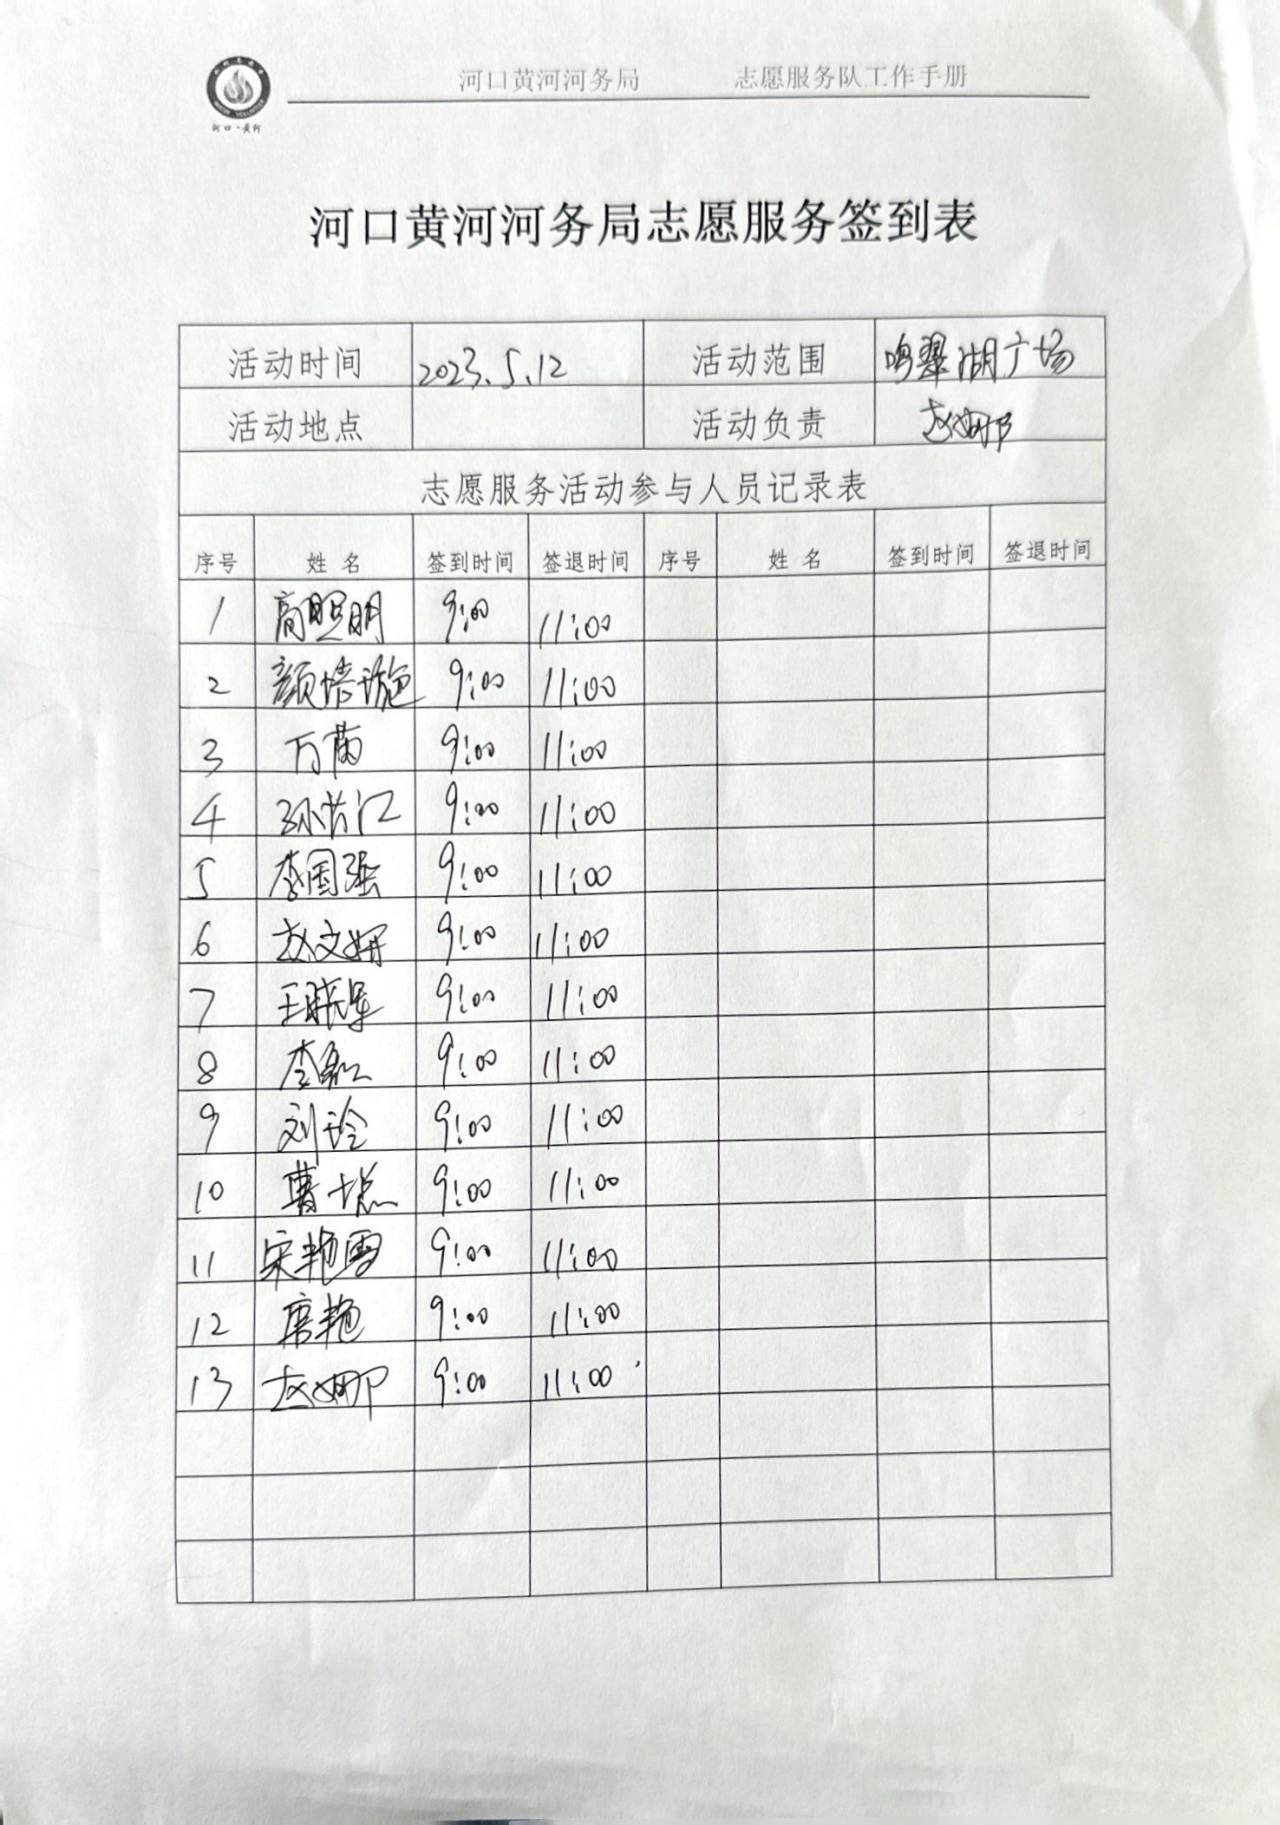 河口黄河河务局 志愿服务队工作手册
河口·黄河
河口黄河河务局志愿服务签到表
活动时间 2023.5.12 活动范围 鸣翠湖广场
活动地点 活动负责 赵娜
志愿服务活动参与人员记录表
序号 姓名 签到时间 签退时间 序号 姓名 签到时间 签退时间
1 高照明 9:00 11:00
2 颜培 9:00 11:00
3 万菌 9:00 11:00
4 孙 江 9:00 11:00
5 李国强 9:00 11:00
6 赵文妍 9:00 11:00
7 王晓星 9:00 11:00
8 李磊 9:00 11:00
9 刘玲 9:00 11:00
10 曹 9:00 11:00
11 宋艳雪 9:00 11:00
12 席艳 9:00 11:00
13 赵娜 9:00 11:00